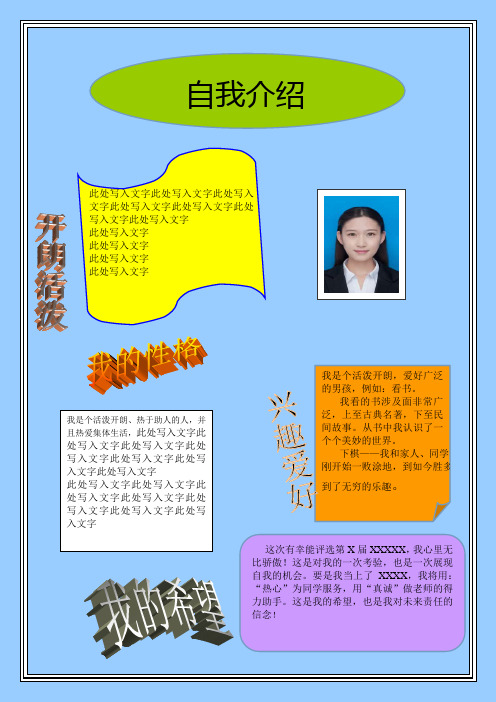 自我介绍
开朗活泼
此处写入文字此处写入文字此处写入
文字此处写入文字此处写入文字此处
写入文字此处写入文字
此处写入文字
此处写入文字
此处写入文字
此处写入文字
我的性格
我是个活泼开朗、热于助人的人，并
且热爱集体生活，此处写入文字此
处写入文字此处写入文字此处写
入文字此处写入文字此处写入文字此处写
入文字此处写入文字
此处写入文字此处写入文字此
处写入文字此处写入文字此处
写入文字此处写入文字此处写
入文字
兴趣爱好
我是个活泼开朗，爱好广泛
的男孩，例如：看书。
我看的书涉及面非常广
泛，上至古典名著，下至民
间故事。从书中我认识了一
个个美妙的世界。
下棋——我和家人、同学
刚开始一败涂地，到如今胜多
到了无穷的乐趣。
我的希望
这次有幸能评选第 X 届 XXXXX，我心里无
比骄傲！这是对我的一次考验，也是一次展现
自我的机会。要是我当上了 XXXX，我将用：
“热心”为同学服务，用“真诚”做老师的得
力助手。这是我的希望，也是我对未来责任的
信念！